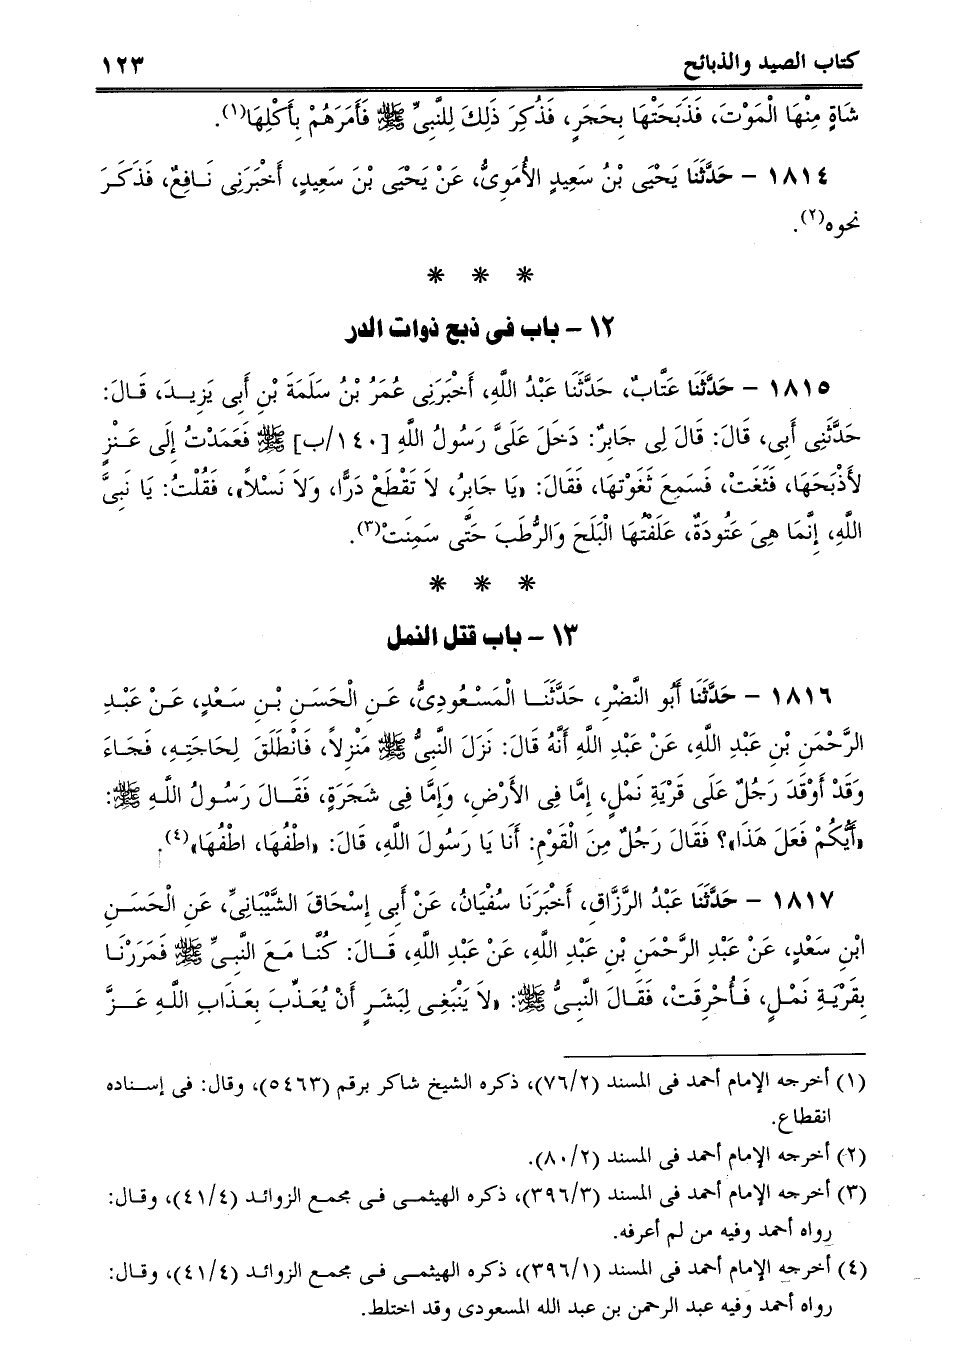 كتاب الصيد والذبائح ١٢٣
شَاةٍ مِنْهَا الْمَوْتَ، فَذَبَحَتْهَا بِحَجَرٍ، فَذُكِرَ ذَلِكَ لِلنَّبِيِّ ﷺ فَأَمَرَهُمْ بِأَكْلِهَا(١).
١٨١٤ – حَدَّثَنَا يَحْيَى بْنُ سَعِيدٍ الأُمَوِىُّ، عَنْ يَحْيَى بْنَ سَعِيدٍ، أَخْبَرَنِى نَافِعٌ، فَذَكَرَ
نحوه(٢).
* * *
١٢ – باب فى ذبح ذوات الدر
١٨١٥ – حَدَّثَنَا عَتَّابٌ، حَدَّثَنَا عَبْدُ اللَّهِ، أَخْبَرَنِى عُمَرُ بْنُ سَلَمَةَ بْنِ أَبِى يَزِيدَ، قَالَ:
حَدَّثَنِى أَبِى، قَالَ: قَالَ لِى جَابِرٌ: دَخَلَ عَلَىَّ رَسُولُ اللَّهِ [١٤٠/ب] ﷺ فَعَمَدْتُ إِلَى عَنْزٍ
لأَذْبَحَهَا، فَثَغَتْ، فَسَمِعَ ثَغْوَتَهَا، فَقَالَ: «يَا جَابِرُ، لاَ تَقْطَعْ دَرًّا، وَلاَ نَسْلاً»، فَقُلْتُ: يَا نَبِىَّ
اللَّهِ، إِنَّمَا هِىَ عَتُودَةٌ، عَلَفْتُهَا الْبَلَحَ وَالرُّطَبَ حَتَّى سَمِنَتْ(٣).
* * *
١٣ – باب قتل النمل
١٨١٦ – حَدَّثَنَا أَبُو النَّضْرِ، حَدَّثَنَا الْمَسْعُودِىُّ، عَنِ الْحَسَنِ بْنِ سَعْدٍ، عَنْ عَبْدِ
الرَّحْمَنِ بْنِ عَبْدِ اللَّهِ، عَنْ عَبْدِ اللَّهِ أَنَّهُ قَالَ: نَزَلَ النَّبِىُّ ﷺ مَنْزِلاً، فَانْطَلَقَ لِحَاجَتِهِ، فَجَاءَ
وَقَدْ أَوْقَدَ رَجُلٌ عَلَى قَرْيَةِ نَمْلٍ، إِمَّا فِى الأَرْضِ، وَإِمَّا فِى شَجَرَةٍ، فَقَالَ رَسُولُ اللَّهِ ﷺ:
«أَيُّكُمْ فَعَلَ هَذَا»؟ فَقَالَ رَجُلٌ مِنَ الْقَوْمِ: أَنَا يَا رَسُولَ اللَّهِ، قَالَ: «اطْفُهَا، اطْفُهَا»(٤).
١٨١٧ – حَدَّثَنَا عَبْدُ الرَّزَّاقِ، أَخْبَرَنَا سُفْيَانُ، عَنْ أَبِى إِسْحَاقَ الشَّيْبَانِىِّ، عَنِ الْحَسَنِ
ابْنِ سَعْدٍ، عَنْ عَبْدِ الرَّحْمَنِ بْنِ عَبْدِ اللَّهِ، عَنْ عَبْدِ اللَّهِ، قَالَ: كُنَّا مَعَ النَّبِىِّ ﷺ فَمَرَرْنَا
بِقَرْيَةِ نَمْلٍ، فَأُحْرِقَتْ، فَقَالَ النَّبِىُّ ﷺ: «لاَ يَنْبَغِى لِبَشَرٍ أَنْ يُعَذِّبَ بِعَذَابِ اللَّهِ عَزَّ
(١) أخرجه الإمام أحمد فى المسند (٧٦/٢)، ذكره الشيخ شاكر برقم (٥٤٦٣)، وقال: فى إسناده
انقطاع.
(٢) أخرجه الإمام أحمد فى المسند (٨٠/٢).
(٣) أخرجه الإمام أحمد فى المسند (٣٩٦/٣)، ذكره الهيثمى فى مجمع الزوائد (٤١/٤)، وقال:
رواه أحمد وفيه من لم أعرفه.
(٤) أخرجه الإمام أحمد فى المسند (٣٩٦/١)، ذكره الهيثمى فى مجمع الزوائد (٤١/٤)، وقال:
رواه أحمد وفيه عبد الرحمن بن عبد الله المسعودى وقد اختلط.